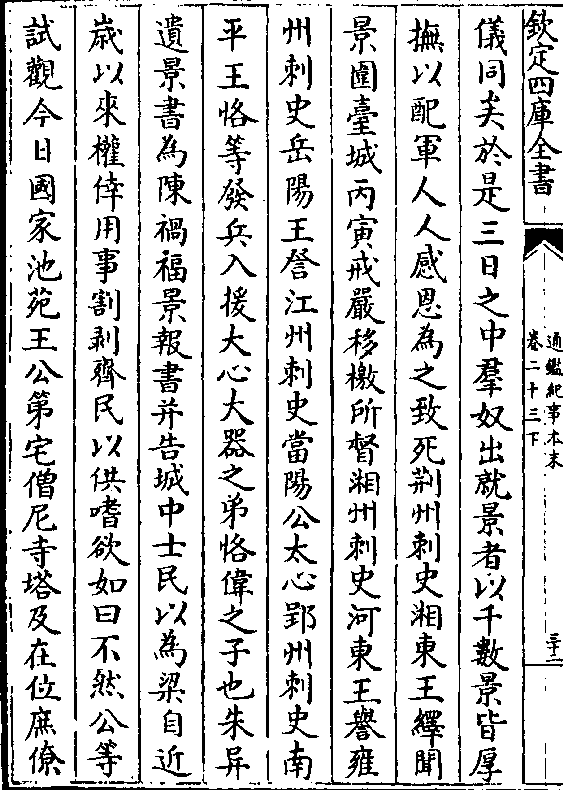 欽定四庫全書
通鑑紀事本末
卷二十三下
三十二
儀同矣於是三日之中羣奴出就景者以千數景皆厚
撫以配軍人人感恩為之致死荆州刺史湘東王繹聞
景圍臺城丙寅戒嚴移檄所督湘州刺史河東王譽雍
州刺史岳陽王詧江州刺史當陽公大心郢州刺史南
平王恪等發兵入援大心大器之弟恪偉之子也朱异
遺景書為陳禍福景報書并告城中士民以為梁自近
歲以來權倖用事割剥齊民以供嗜欲如曰不然公等
試觀今日國家池苑王公第宅僧尼寺塔及在位庶僚